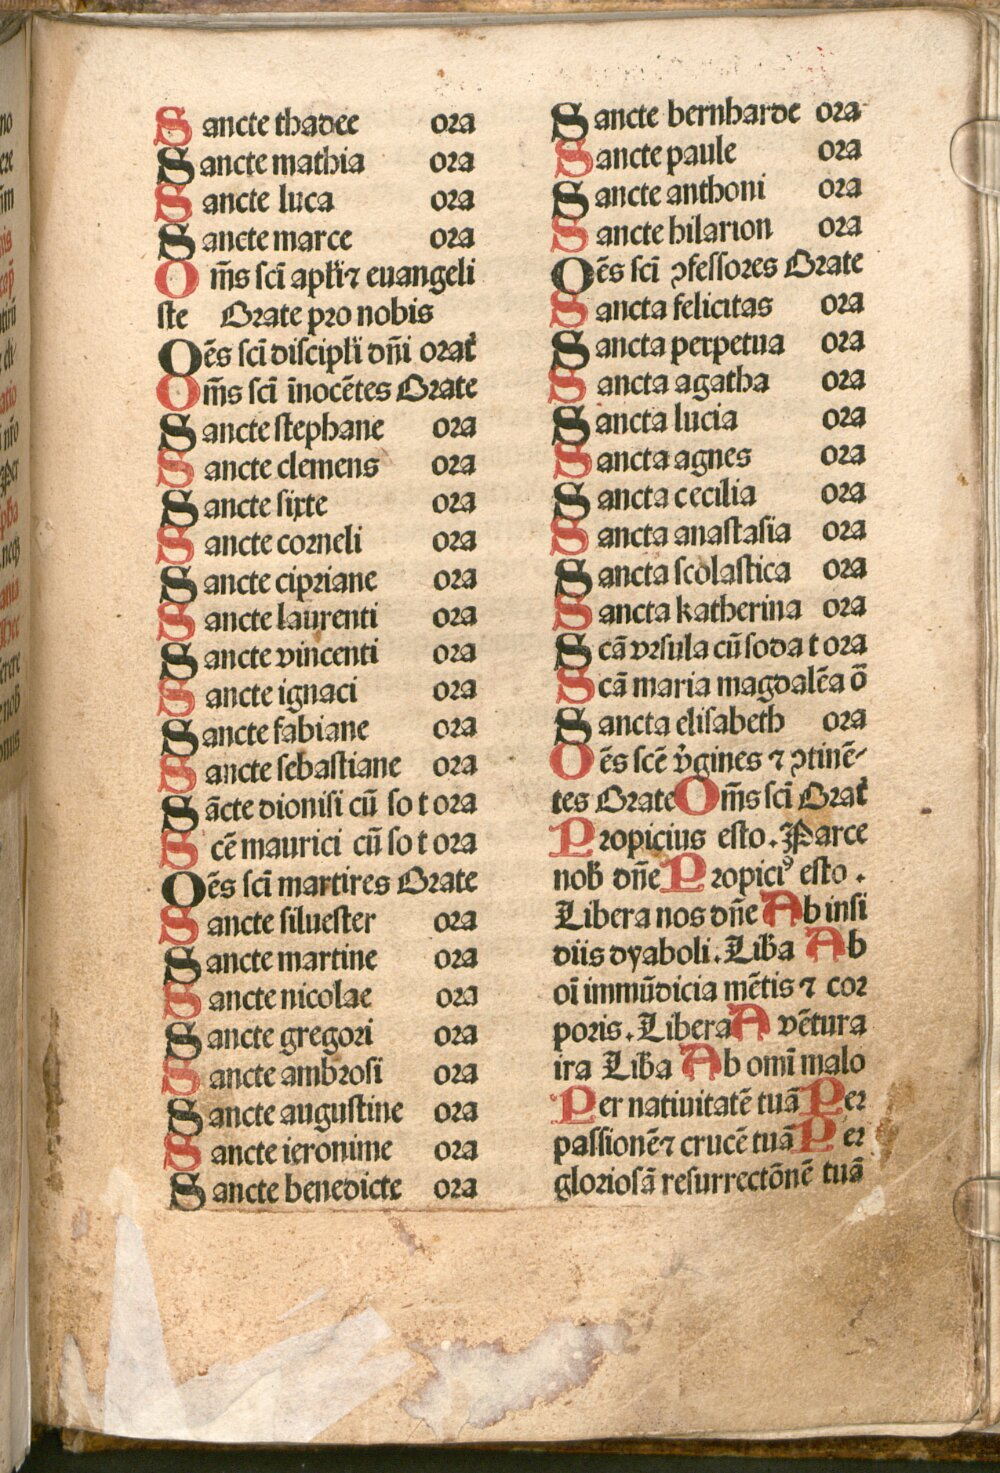 Sancte thadee ora
Sancte mathia ora
Sancte luca ora
Sancte marce ora
Om̅s sc̅i apl̅i ⁊ euangeli
ste Orate pro nobis
Oēs sc̅i discipl̅i dn̅i orat̅
Om̅s sc̅i īnocētes Orate
Sancte stephane ora
Sancte clemens ora
Sancte sixte ora
Sancte corneli ora
Sancte cipriane ora
Sancte laurenti ora
Sancte vincenti ora
Sancte ignaci ora
Sancte fabiane ora
Sancte sebastiane ora
Sācte dionisi cū so t ora
Scē maurici cū so t ora
Oēs sc̅i martires Orate
Sancte siluester ora
Sancte martine ora
Sancte nicolae ora
Sancte gregori ora
Sancte ambrosi ora
Sancte augustine ora
Sancte ieronime ora
Sancte benedicte ora
Sancte bernharde ora
Sancte paule ora
Sancte anthoni ora
Sancte hilarion ora
Oēs sc̅i ꝯfessores Orate
Sancta felicitas ora
Sancta perpetua ora
Sancta agatha ora
Sancta lucia ora
Sancta agnes ora
Sancta cecilia ora
Sancta anastasia ora
Sancta scolastica ora
Sancta katherina ora
Scā vrsula cū soda t ora
Scā maria magdalēa ō
Sancta elisabeth ora
Oēs scē v̓gines ⁊ ꝯtinē-
tes Orate Om̅s sc̅i Orat̅
Propicius esto. Parce
nob̅ dn̅e Propiciꝰ esto.
Libera nos dn̅e Ab insi
diis dyaboli. Lib̅a Ab
oi̅ immūdicia mētis ⁊ cor
poris. Libera A vētura
ira Lib̅a Ab omi̅ malo
Per natiuitatē tuā Per
passionē ⁊ crucē tuā Per
gloriosā resurrectōnē tuā